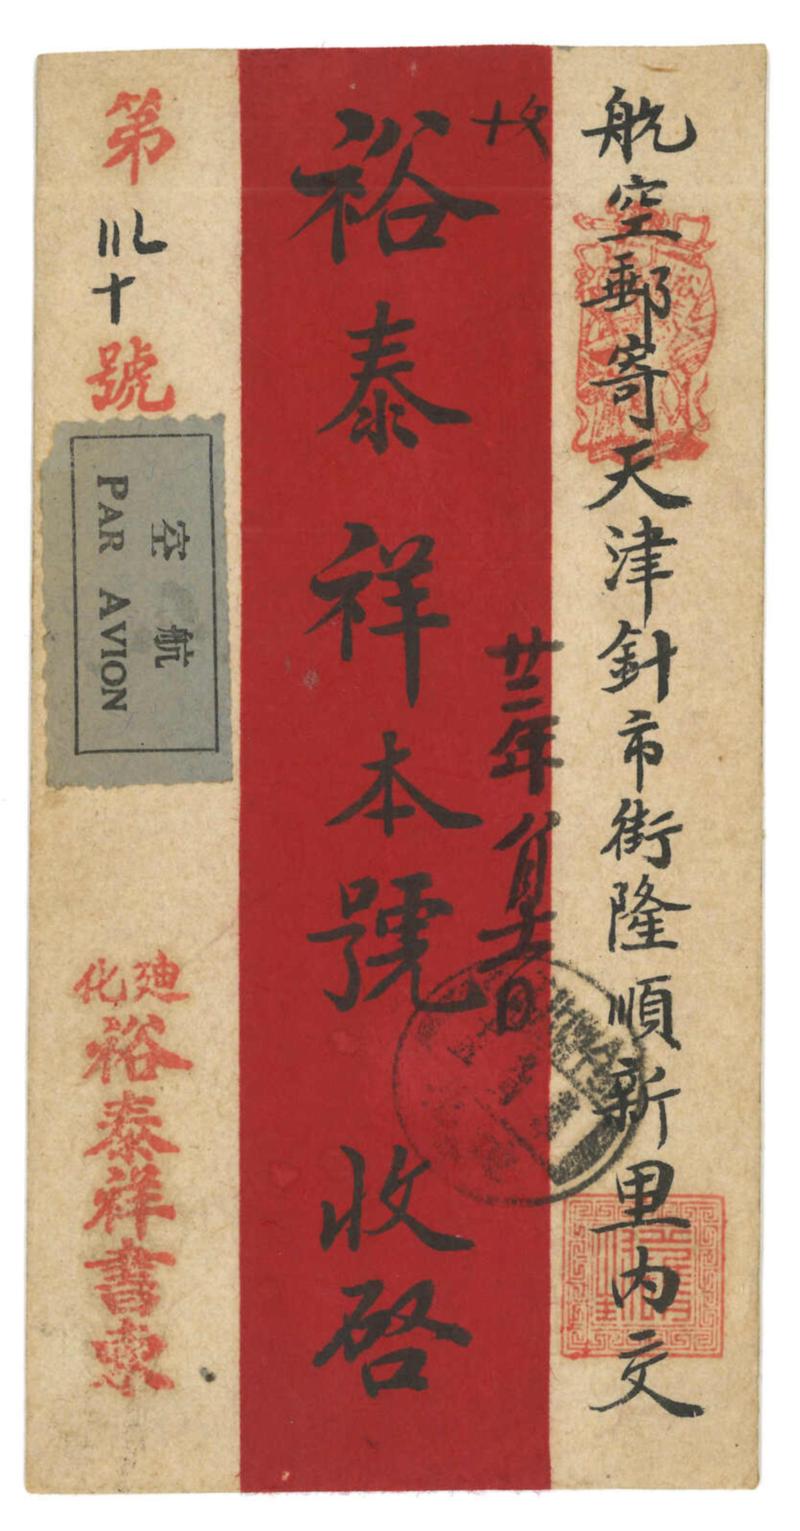 航空郵寄天津針市街隆順新里内交
裕泰祥本號 收啓
廿二年
日
第
十
號
航空
PAR AVION
廸化
裕泰祥書柬